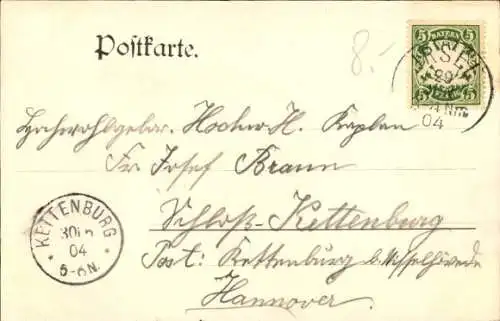 Postkarte.
8.-
5 BAYERN 5
29
04
Hochwohlgebor. Hochw. H. Kaplan
Fr. Josef Braun
Schloß-Kettenburg
Post: Kettenburg b. Visselhövede
Hannover.
KETTENBURG
04
5-6N.